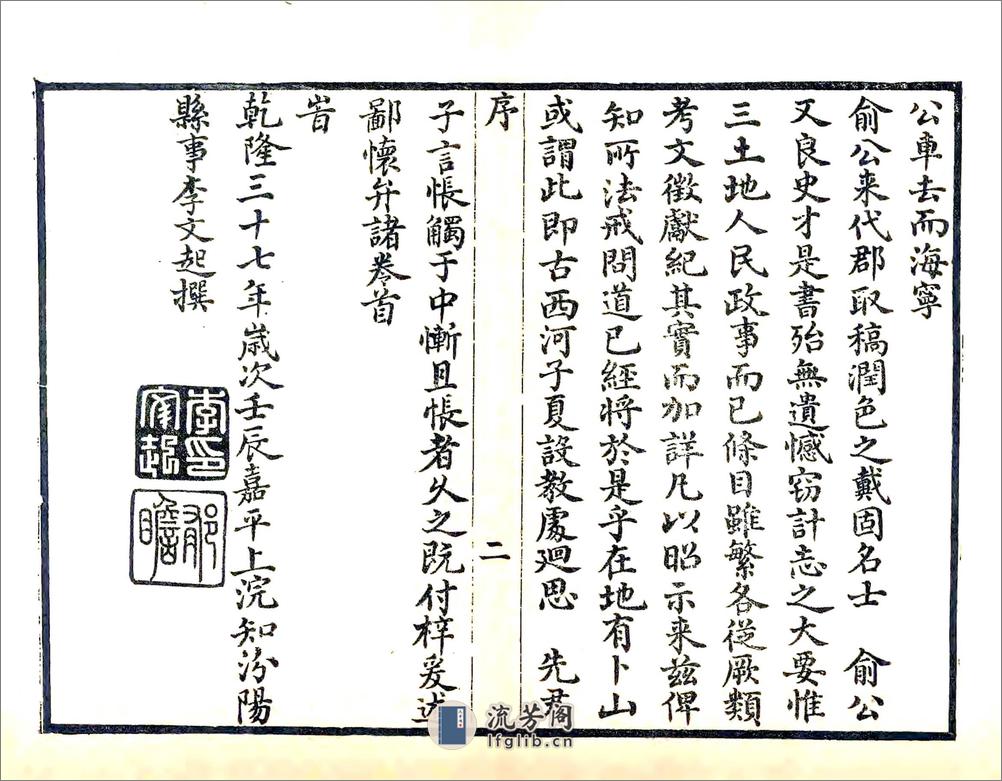 公車去而海寧
俞公来代郡取稿潤色之戴固名士　俞公
又良史才是書殆無遺憾窃計志之大要惟
三土地人民政事而已條目雖繁各從厥類
考文徵獻紀其實而加詳凡以昭示来兹俾
知所法戒問道已經將於是乎在地有卜山
或謂此即古西河子夏設教處廻思　先君
序
二
子言悵觸于中慚且悵者久之既付梓爰述
鄙懷弁諸卷首
旹
乾隆三十七年歳次壬辰嘉平上浣知汾陽
縣事李文起撰
李文起印
流芳阁
lfglib.cn